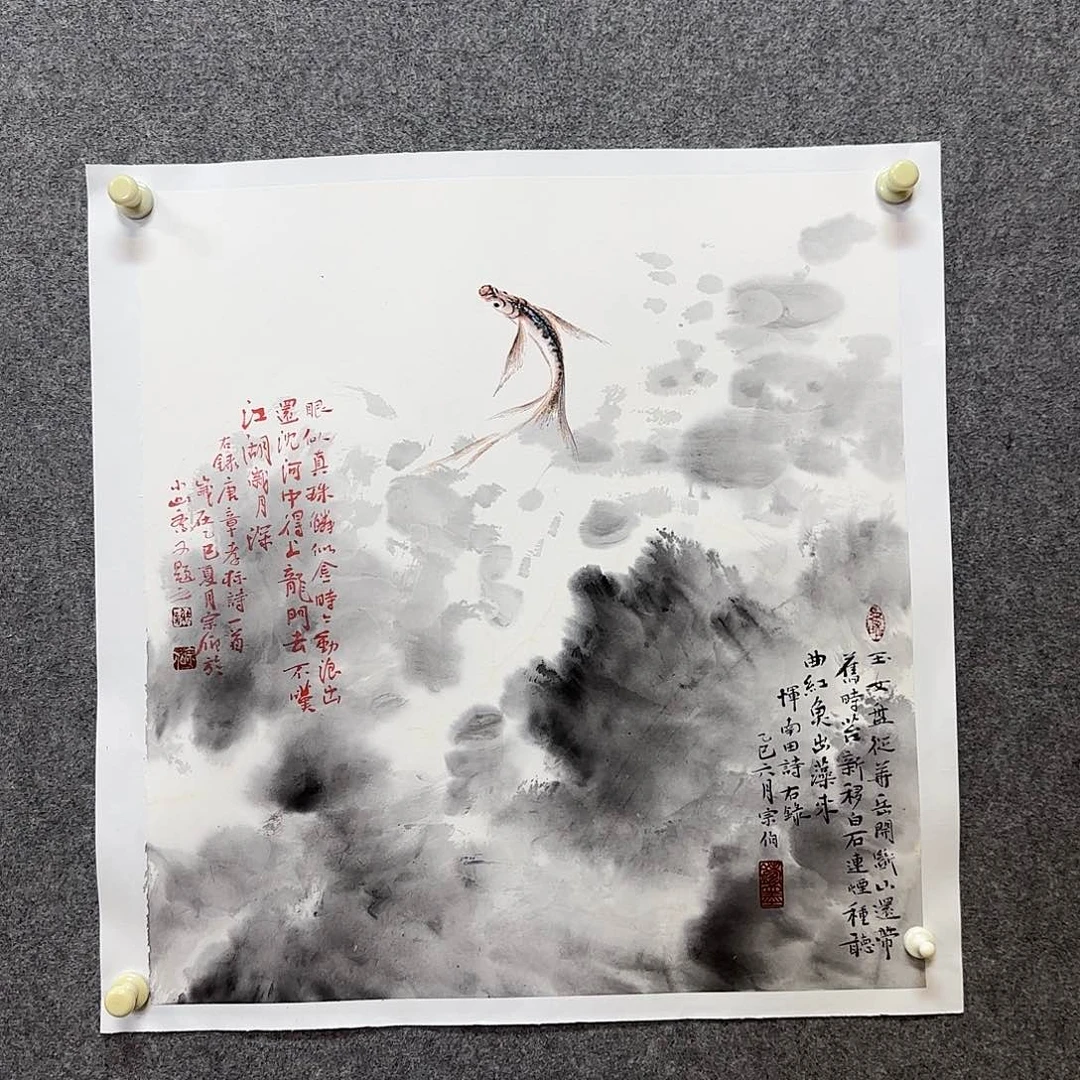 玉女盆從華岳開山還帶
舊時苔新移白石連煙種聽
曲紅魚出藻來
惲南田詩右錄
乙巳六月宗伯
眼似真珠鱗似金時々動浪出
還沈河中得上龍門去不嘆
江湖歲月深
右錄唐章孝标詩一首
歲在乙巳夏月宗伯於
小山又題之